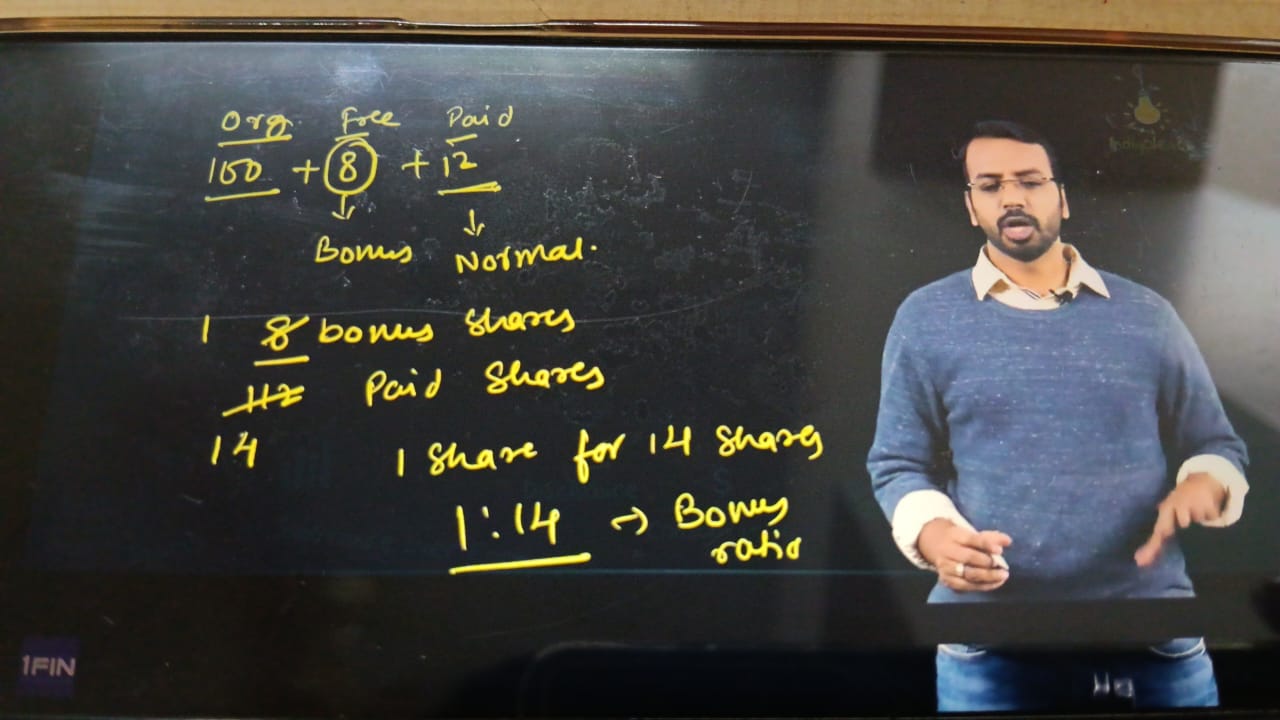 Org. Free Paid
100 + 8 + 12
Bonus Normal.
1 8 bonus shares
112 Paid Shares
14
1 Share for 14 Shares
1:14 → Bonus
ratio
1FIN